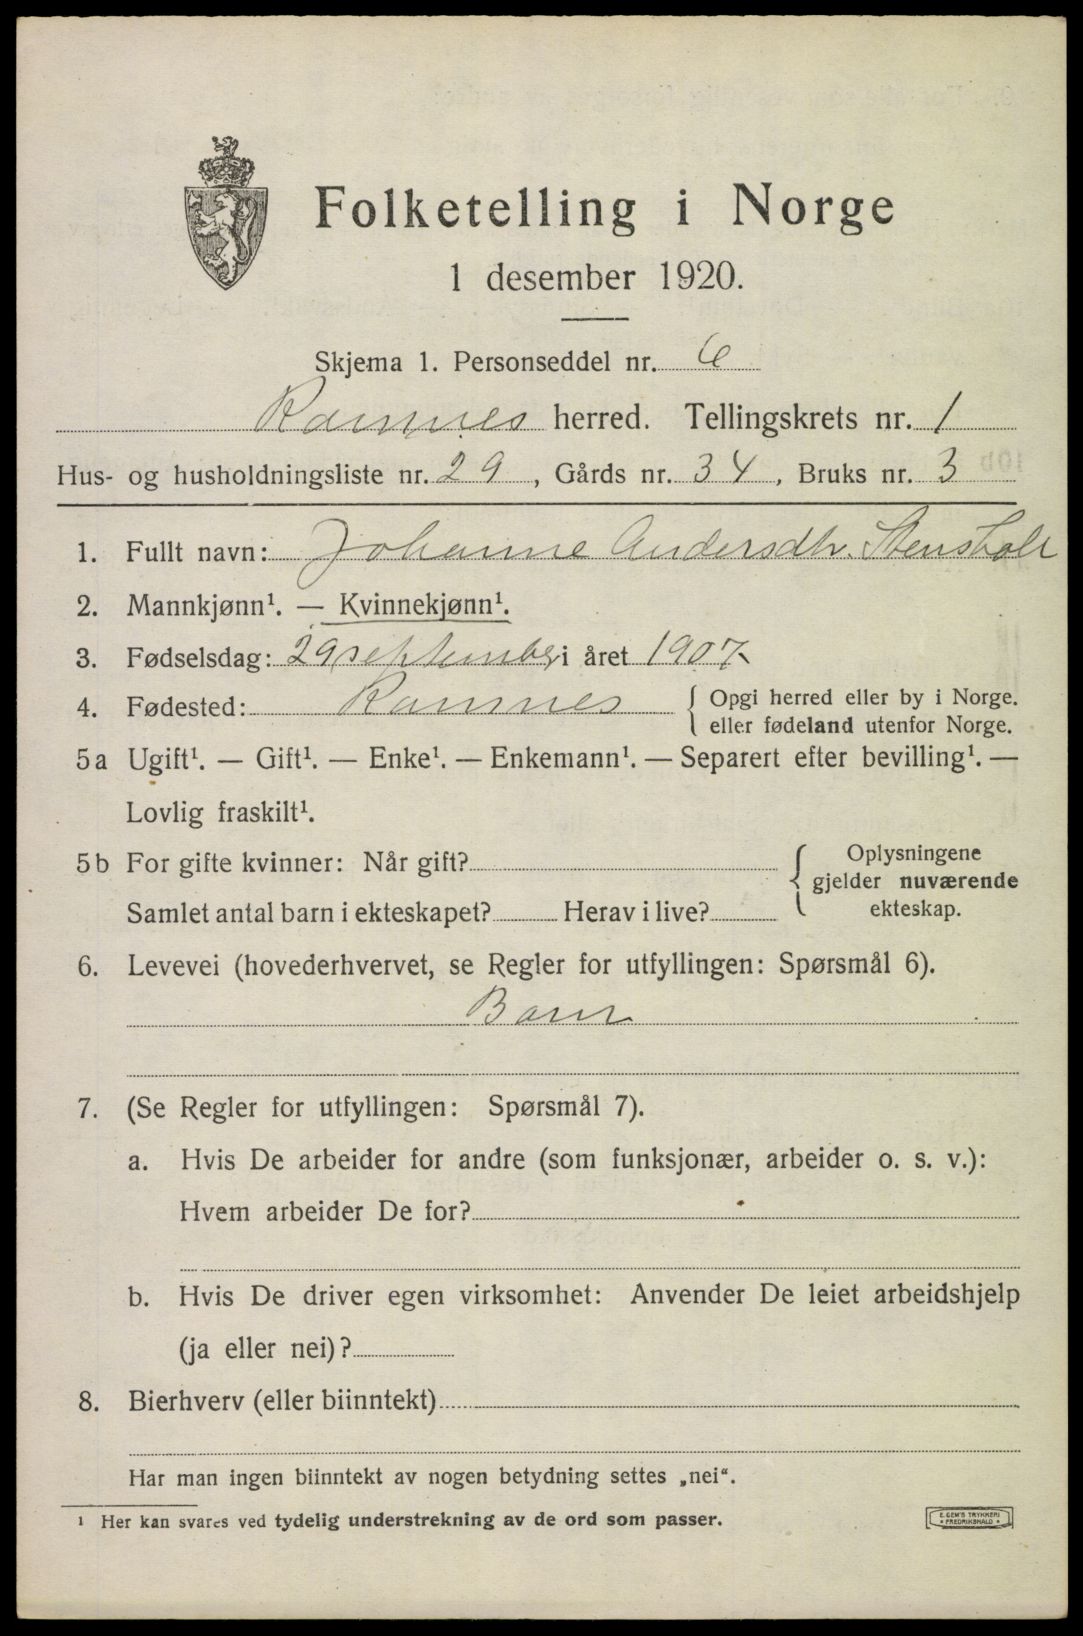 Folketelling i Norge
1 desember 1920.
Skjema 1. Personseddel nr. 6
Ramnes herred. Tellingskrets nr. 1
Hus- og husholdningsliste nr. 29, Gårds nr. 34, Bruks nr. 3
1. Fullt navn: Johanne Andersdtr. Stensholt
2. Mannkjønn¹. — Kvinnekjønn¹.
3. Fødselsdag: 29 september i året 1907
4. Fødested: Ramnes { Opgi herred eller by i Norge.
eller fødeland utenfor Norge.
5a Ugift¹. — Gift¹. — Enke¹. — Enkemann¹. — Separert efter bevilling¹. —
Lovlig fraskilt¹.
5b For gifte kvinner: Når gift?
Samlet antal barn i ekteskapet? Herav i live?
{ Oplysningene
gjelder nuværende
ekteskap.
6. Levevei (hovederhvervet, se Regler for utfyllingen: Spørsmål 6).
Barn
7. (Se Regler for utfyllingen: Spørsmål 7).
a. Hvis De arbeider for andre (som funksjonær, arbeider o. s. v.):
Hvem arbeider De for?
b. Hvis De driver egen virksomhet: Anvender De leiet arbeidshjelp
(ja eller nei)?
8. Bierhverv (eller biinntekt)
Har man ingen biinntekt av nogen betydning settes „nei“.
¹ Her kan svares ved tydelig understrekning av de ord som passer.
E. GEM'S TRYKKERI
• FREDRIKSHALD •